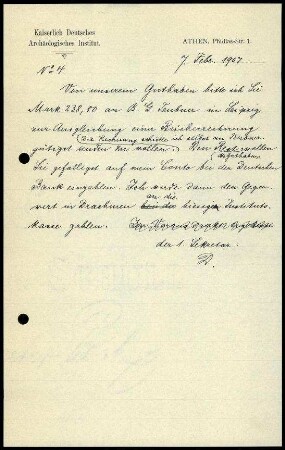 Kaiserlich Deutsches
Archäologisches Institut.
ATHEN, Phidias-Str. 1.
No 4
7. Febr. 1907.
Von unserem Guthaben bitte ich Sie
Mark 238,80 an B G Teubner in Leipzig
zur Ausgleichung einer
(Die Rechnung schicke ich selbst an Teubner.)
gütigst senden zu wollen. Den Rest wollen
Sie gefälligst auf mein Conto bei der Deutschen
Bank einzahlen. Ich werde dann den Gegen-
an die
wert in Drachmen hiesige Instituts-
kasse zahlen.
der 1. Sekretar
D.